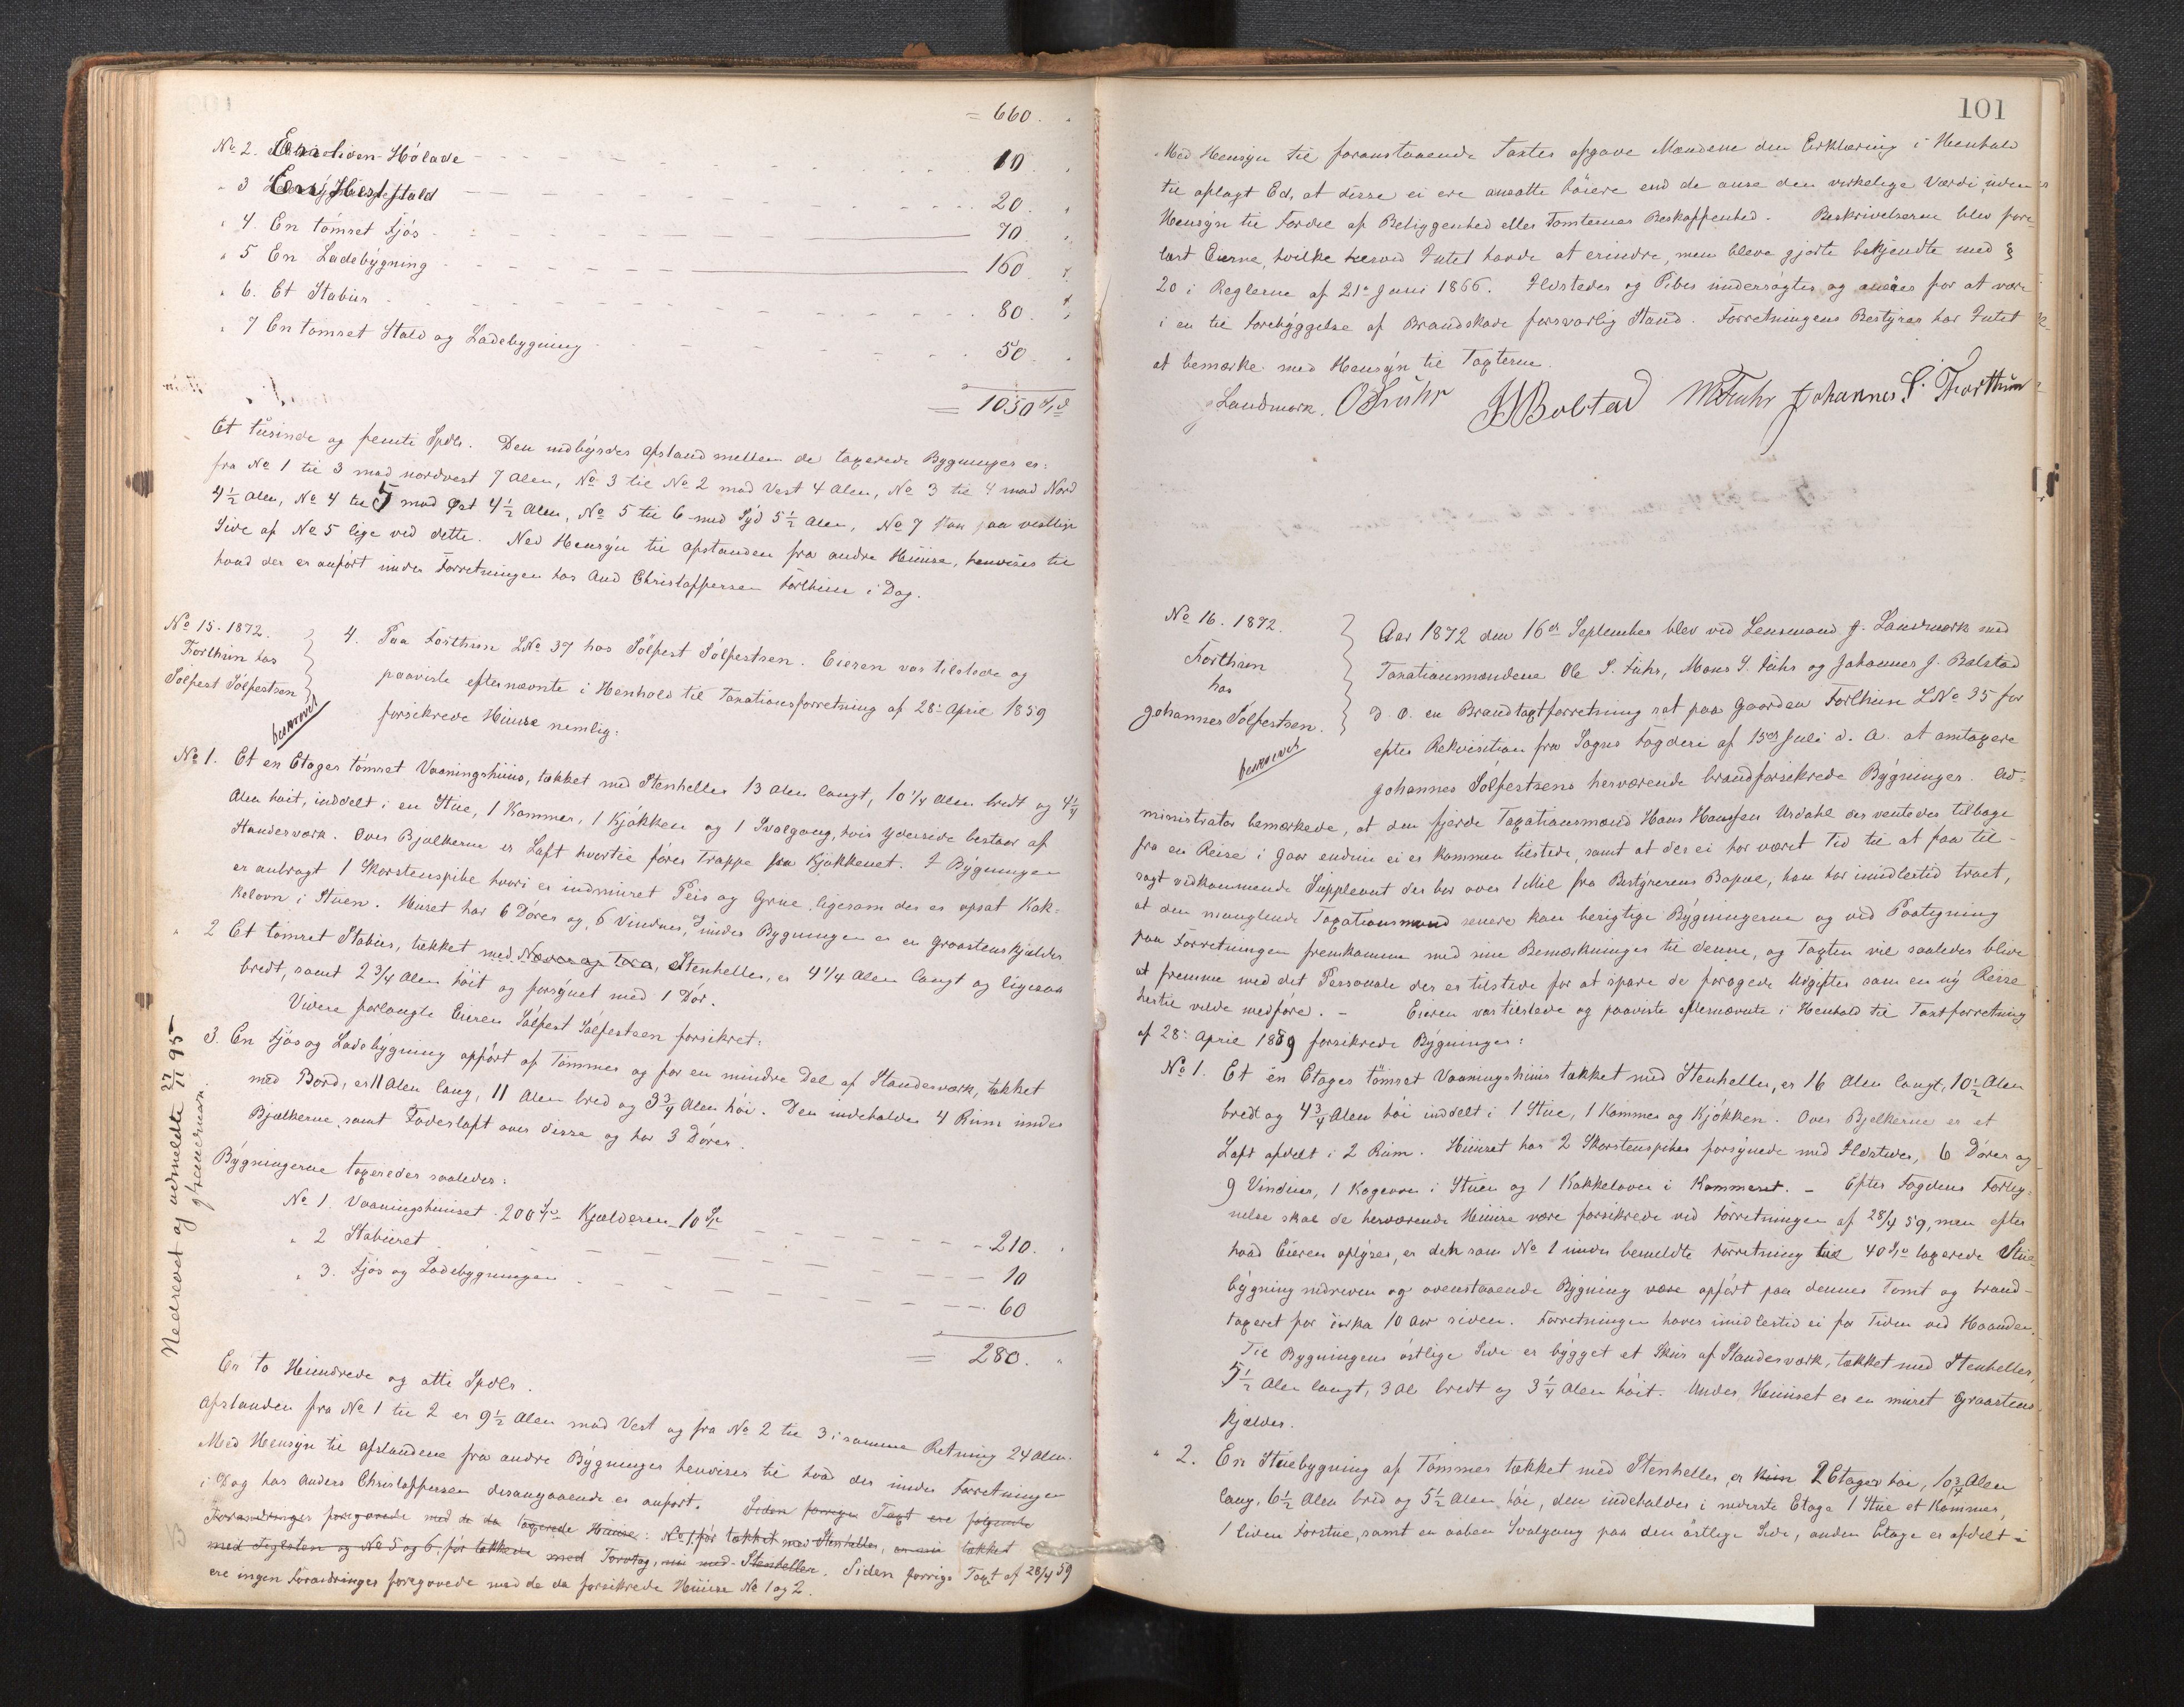 = 660. "
No 2. En liden Hölade - - - 10. "
" 3 En Hestestald - - - 20. "
" 4. En tömret Fjös - - - 70. "
" 5 En Ladebygning - - - 160. "
" 6. Et Stabur - - - 80. "
" 7 En tömret Stald og Ladebygning - - - 50. "
= 1050
Et tusinde og femti Spdlr. Den indbyrdes Afstand mellem de taxerede Bygninger er:
fra No 1 til 3 mod nordvest 7 Alen, No 3 til No 2 mod Vest 4 Alen, No 3 til 4 mod Nord
4½ Alen, No 4 til 5 mod Øst 4½ Alen, No 5 til 6 mod Syd 5½ Alen, No 7 staar paa vestlige
Side af No 5 lige ved dette. Med Hensyn til Afstanden fra andre Huuse, henvises til
hvad der er anfört under Forretningen hos And Christoffersen Forthun i Dag.
No 15. 1872.
Forthun hos
Sölfest Sölfestsen
beskrevet
4. Paa Forthun LNo 37 hos Sölfest Sölfestsen. Eieren var tilstede og
paaviste efternævnte i Henhold til Taxationsforretning af 28de April 1859
forsikrede Huuse nemlig:
No 1. Et en Etages tömret Vaaningshuus, tækket med Stenheller 13 Alen langt, 10¼ Alen bredt og 4¼
Alen höit, inddelt i en Stue, 1 Kammer, 1 Kjökken og 1 Svalgang, hvis Yderside bestaar af
Standerværk. Over Bjælkerne er Loft hvortil förer Trappe fra Kjökkenet. I Bygningen
er anbragt 1 Skorstenspibe hvori er indmuret Peis og Grue, ligesom der er opsat Kak-
kelovn i Stuen. Huset har 6 Dörer og 6 Vinduer, under Bygningen er en Graastenskjelder
" 2 Et tömret Stabur, tækket med Næver og Torv, Stenheller, er 4¼ Alen langt og ligesaa
bredt, samt 2¾ Alen höit og forsynet med 1 Dör.
Videre forlangte Eieren Sölfest Sölfestsen forsikret:
3. En Fjös og Ladebygning opfört af Tömmer og for en mindre Del af Standerværk, tækket
med Bord, er 11 Alen lang, 11 Alen bred og 3¾ Alen höi. Den indeholder 4 Rum under
Bjælkerne, samt Foderloft over disse og har 3 Dörer.
Bygningerne taxeredes saaledes:
No 1. Vaaningshuuset 200 Kjælderen 10 - - - 210. "
" 2 Stabueret - - - 10
" 3. Fjös og Ladebygningen - - - 60
= 280. "
Er to Hundrede og otti Spdlr.
Afstanden fra No 1 til 2 er 9½ Alen mod Vest og fra No 2 til 3 i samme Retning 24 Alen.
Med Hensyn til Afstandene fra andre Bygninger henvises til hvad der under Forretningen
i Dag hos Anders Christoffersen desangaaende er anfört. Siden forrige Taxt ere fölgende
Forandringer foregaaede med de da taxerede Huuse: No 1 för tækket med Stenheller, er nu tækket
med Tegelsten og No 5 og 6 för tækkede med Torvtag, nu med Stenheller. Siden forrige Taxt af 28/4 59
ere ingen Forandringer foregaaede med de da forsikrede Huuse No 1 og 2.
Nedrevet og udmeldte 27/11 95
101
Med Hensyn til foranstaaende Taxter afgave Mændene den Erklæring i Henhold
til aflagt Ed, at disse ei ere ansatte höiere end de anse den virkelige Værdi, uden
Hensyn til Fordel af Beliggenhed eller Tomternes Beskaffenhed. Beskrivelserne blev fore-
læst Eierne, hvilke herved Intet havde at erindre, men bleve gjorte bekjendte med §
20 i Reglerne af 21de Juni 1866. Ildsteder og Piber undersögtes og ansees for at være
i en til Forebyggelse af Brandskade forsvarlig Stand. Forretningens Bestyrer har Intet
at bemærke med Hensyn til Taxterne.
J Landmark. O S Fuhr J J Bolstad M S Fuhr Johannes S. Forthun
No 16. 1872.
Forthun
hos
Johannes Sölfestsen.
beskrevet
Aar 1872 den 16de September blev ved Lensmand J. Landmark med
Taxationsmændene Ole S. Fuhr, Mons S. Fuhr og Johannes J. Bolstad
d. O. en Brandtaxtforretning sat paa Gaarden Forthun LNo 35 for
efter Rekvisition fra Sogns Fogderi af 15de Juli d. A. at omtaxere
Johannes Sölfestsens herværende brandforsikrede Bygninger. Ad-
ministrator bemærkede, at den fjerde Taxationsmand Hans Hansen Urdahl der ventedes tilbage
fra en Reise i Gaar endnu ei er kommen tilstede, samt at der ei har været Tid til at faa til-
sagt vedkommende Suppleant der bor over 1 Mil fra Bestyrerens Bopæl, han har imidlertid troet,
at den manglende Taxationsmand senere kan besigtige Bygningerne og ved Paategning
paa Forretningen fremkomme med sine Bemærkninger til denne, og Taxten vil saaledes blive
at fremme med det Personale der er tilstede for at spare de forögede Udgifter som en ny Reise
hertil vilde medföre. - Eieren var tilstede og paaviste efternævnte i Henhold til Taxtforretning
af 28de April 1859 forsikrede Bygninger:
No 1. Et en Etages tömret Vaaningshuus tækket med Stenheller, er 16 Alen langt, 10½ Alen
bredt og 4¾ Alen höi inddelt i 1 Stue, 1 Kammer og Kjökken. Over Bjelkerne er et
Loft afdelt i 2 Rum. Huuset har 2 Skorstenspiber forsynede med Ildsteder, 6 Dörer og
9 Vinduer, 1 Kogeovn i Stuen og 1 Kakkelovn i Kammeret. - Efter Fogdens Forteg-
nelse skal de herværende Huuse være forsikrede ved Forretningen af 28/4 59, men efter
hvad Eieren oplyser, er den som No 1 under bemeldte Forretning til 40 taxerede Stue-
bygning nedreven og ovenstaaende Bygning være opfört paa dennes Tomt og brand-
taxeret for cirka 10 Aar siden. Forretningen haves imidlertid ei for Tiden ved Haanden.
Til Bygningens östlige Side er bygget et Skur af Standerværk, tækket med Stenheller,
5½ Alen langt, 3 Al bredt og 3¼ Alen höit. Under Huuset er en muret Graastens
Kjælder.
" 2. En Stuebygning af Tömmer tækket med Stenheller, er 2 Etager höi, 10¾ Alen
lang, 6½ Alen bred og 5½ Alen höi, den indeholder i nederste Etage 1 Stue et Kammer,
1 liden Forstue, samt en aaben Svalgang paa den östlige Side, anden Etage er afdelt i